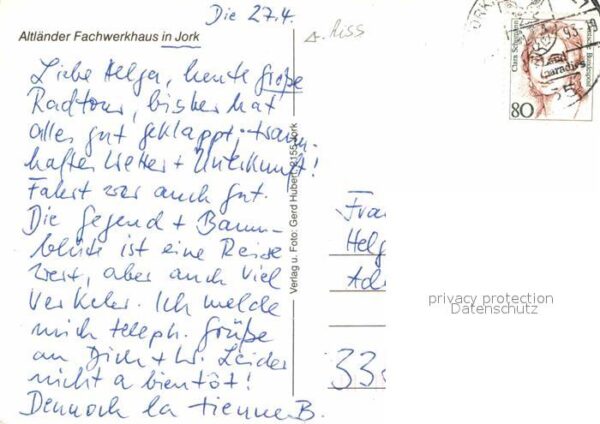 Die 27.4.
Altländer Fachwerkhaus in Jork
Riss
Liebe Helga, heute große
Radtour, bisher hat
alles gut geklappt, traum-
haftes Wetter + Unterkunft!
Fahrt war auch gut.
Die Gegend + Baum-
blüte ist eine Reise
wert, aber auch viel
Verkehr. Ich melde
mich teleph. Grüße
an Dich + W. Leider
nicht a bientôt!
Dennoch la tienne B.
Verlag u. Foto: Gerd Hubert, 2155 Jork
Clara Schumann
Deutsche Bundespost
80
paradies
Frau
Helg
Ade
33
privacy protection
Datenschutz